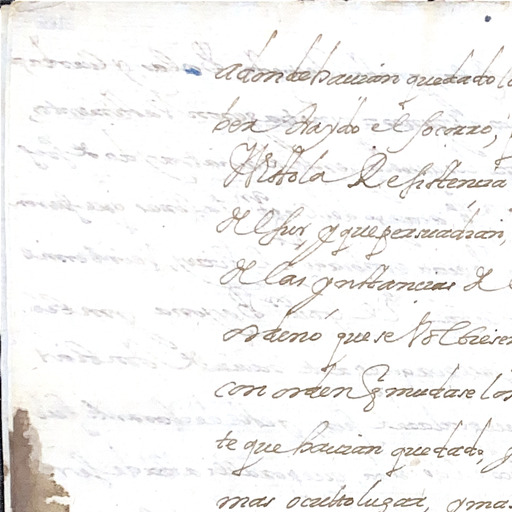 adonde hauian quedado lo
ber traydo el socorro,
Vistola Resistencia
del sur, y que persuadian,
de las ynstancias de
ordenó que se Volbiesen
con orden q̃ mudase los
te que hauian quedado,
mas oculto lugar, y mas